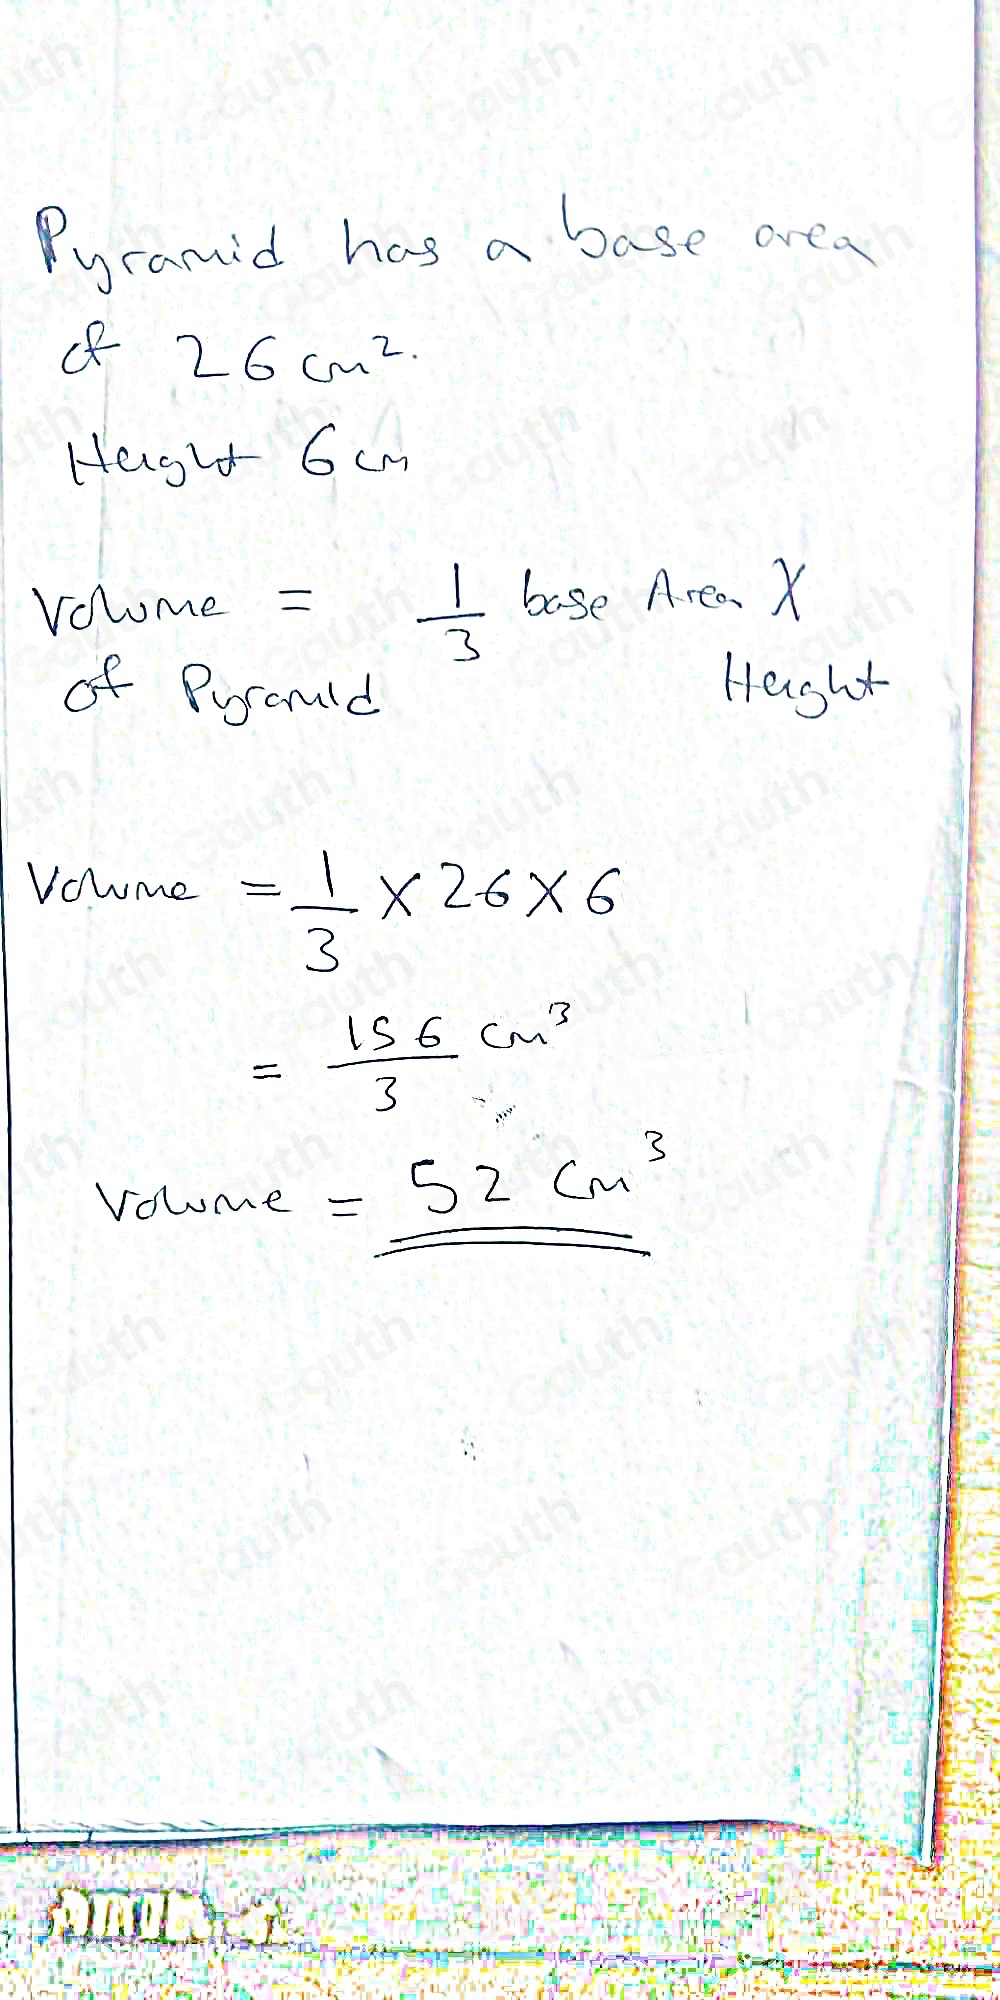 Pyramid has a base area
of 26 cm².
Height 6 cm
Volume = 1/3 base Area X
of Pyramid Height
Volume = 1/3 × 26 × 6
= 156/3 cm³
Volume = 52 cm³